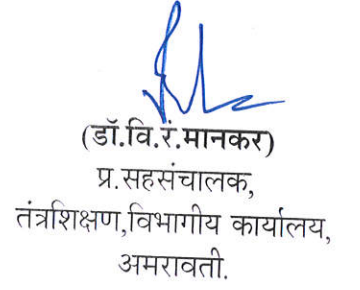 (डॉ.वि.रं.मानकर)
प्र.सहसंचालक,
तंत्रशिक्षण,विभागीय कार्यालय,
अमरावती.